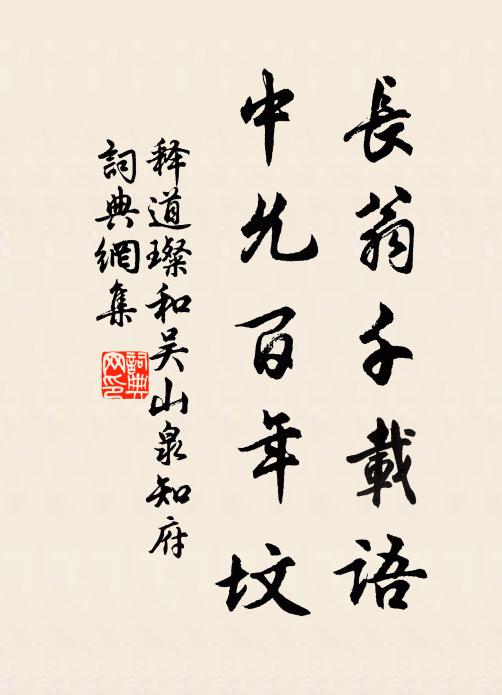 長翁千載語
中允百年墳
释道璨和吴山泉知府
詞典網集
詞典網印